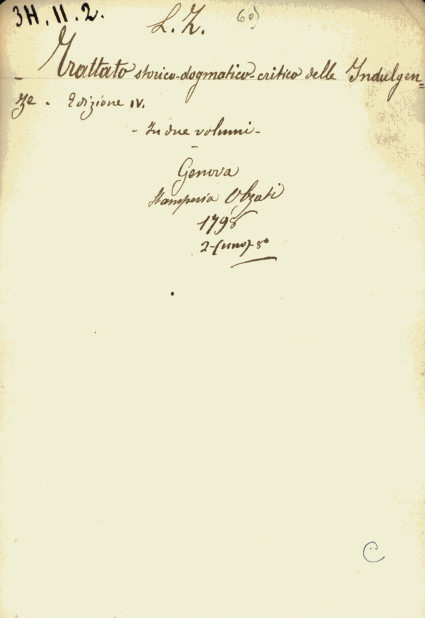 3H.11.2.
L. Z. 60)
- Trattato storico-dogmatico-critico delle Indulgen=
ze - Edizione IV.
- In due volumi -
-
Genova
Stamperia Olzati
1798
2-(uno)-8º
C